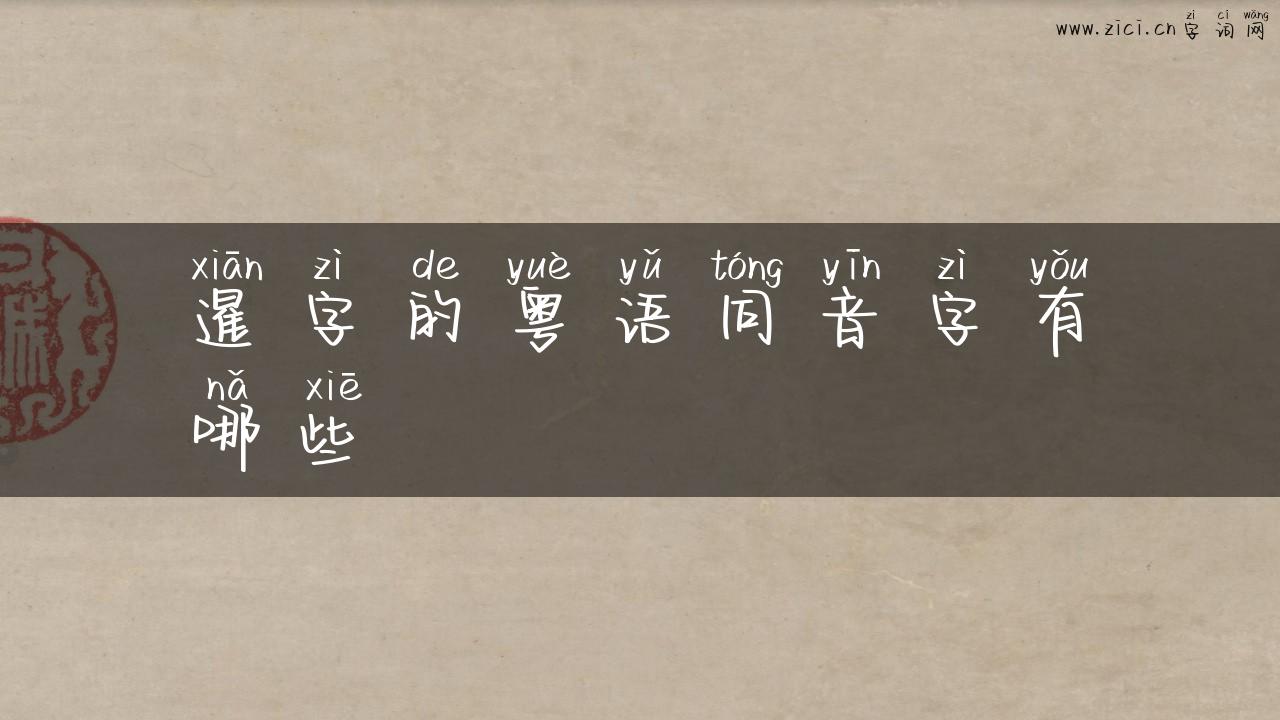 www.zici.cn 字词网
zì cí wǎng
xiān zì de yuè yǔ tóng yīn zì yǒu
暹字的粤语同音字有
nǎ xiē
哪些